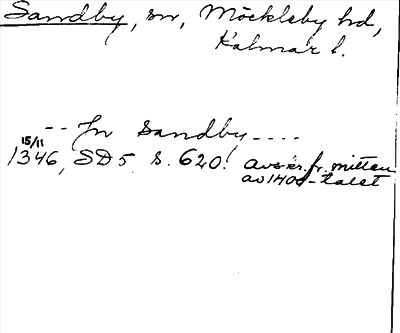 Sandby, sn, Möckleby hd,
Kalmar l.
-- In Sandby ----
15/11
1346, SD 5 s. 620! avskr. fr. mitten
av 1400-talet